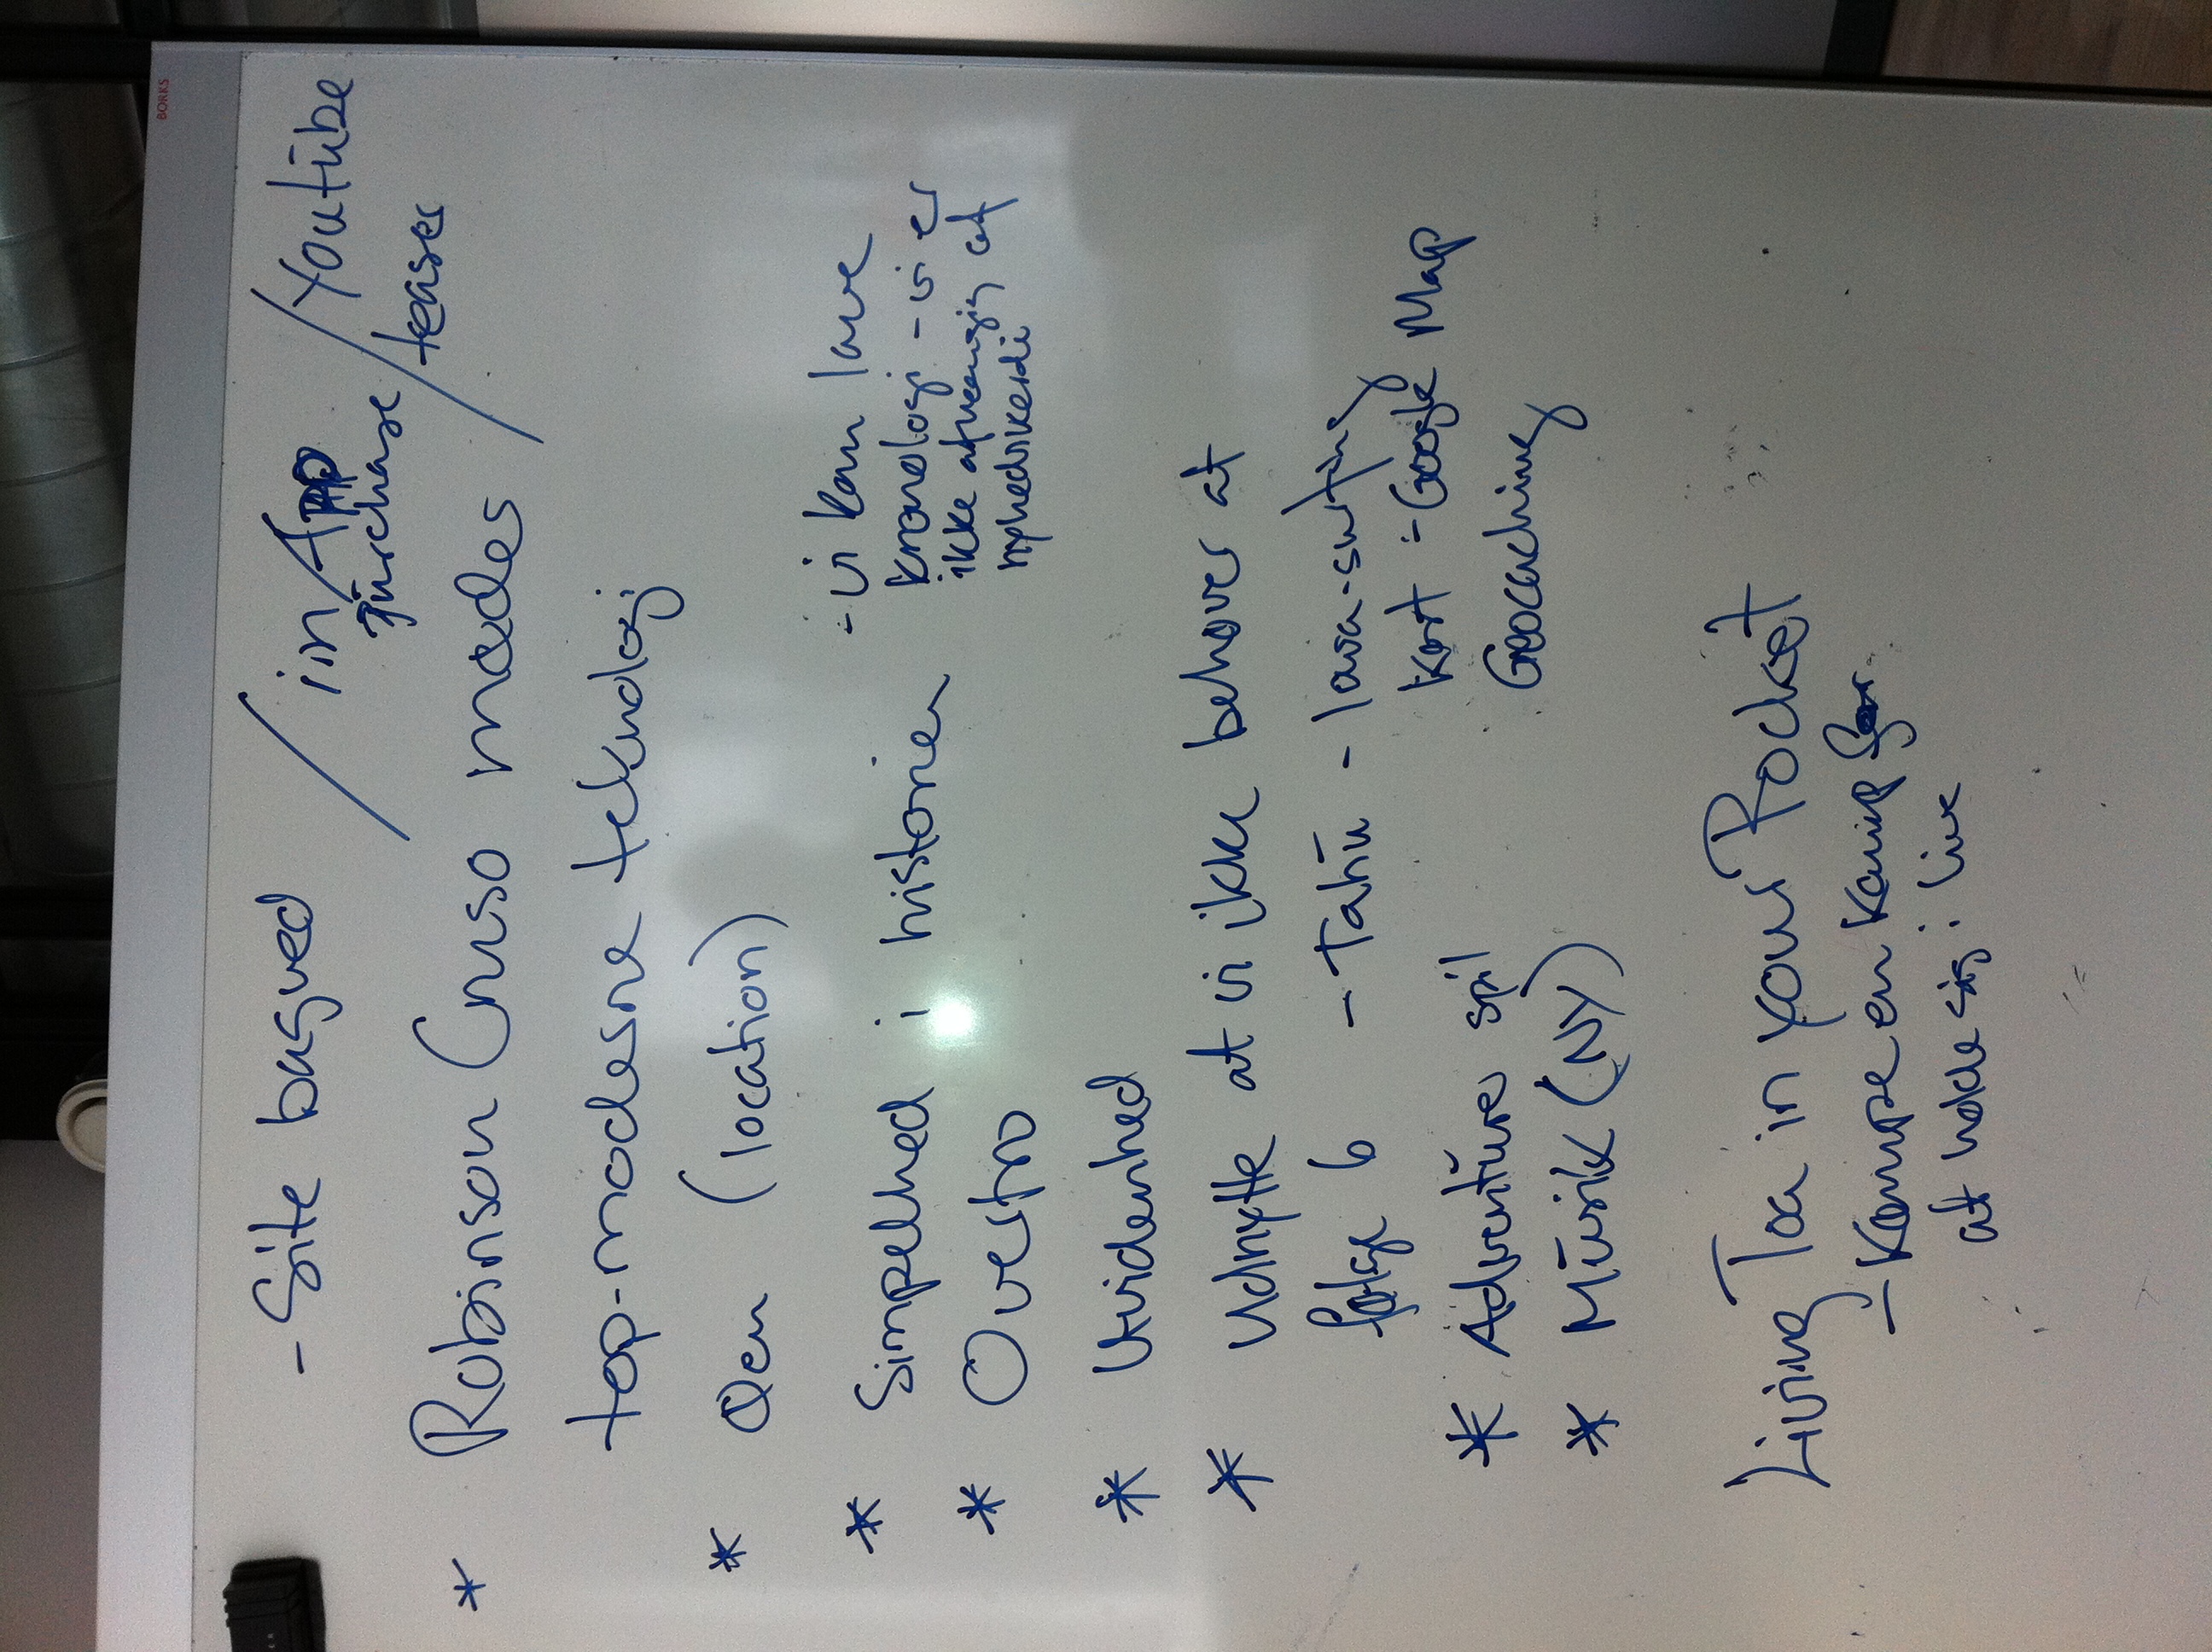 BORKS
- Site basved / in App purchase / Youtube teaser
* Robinson Cruso møder
top-moderne teknologi
* Øen (location)
* Simpelhed i historien - vi kan lave
kronologi - vi er
ikke afhængig af
nyhedsværdi
* Overtro
* Uvidenhed
* Udnytte at vi ikke behøver at
følge 6 - Tahu - lava-surfing
Kort - Google Map
* Adventure spil Geocaching
* Musik (NY)
Living Toa in your Pocket
- Kæmpe en kamp for
at holde sig i live